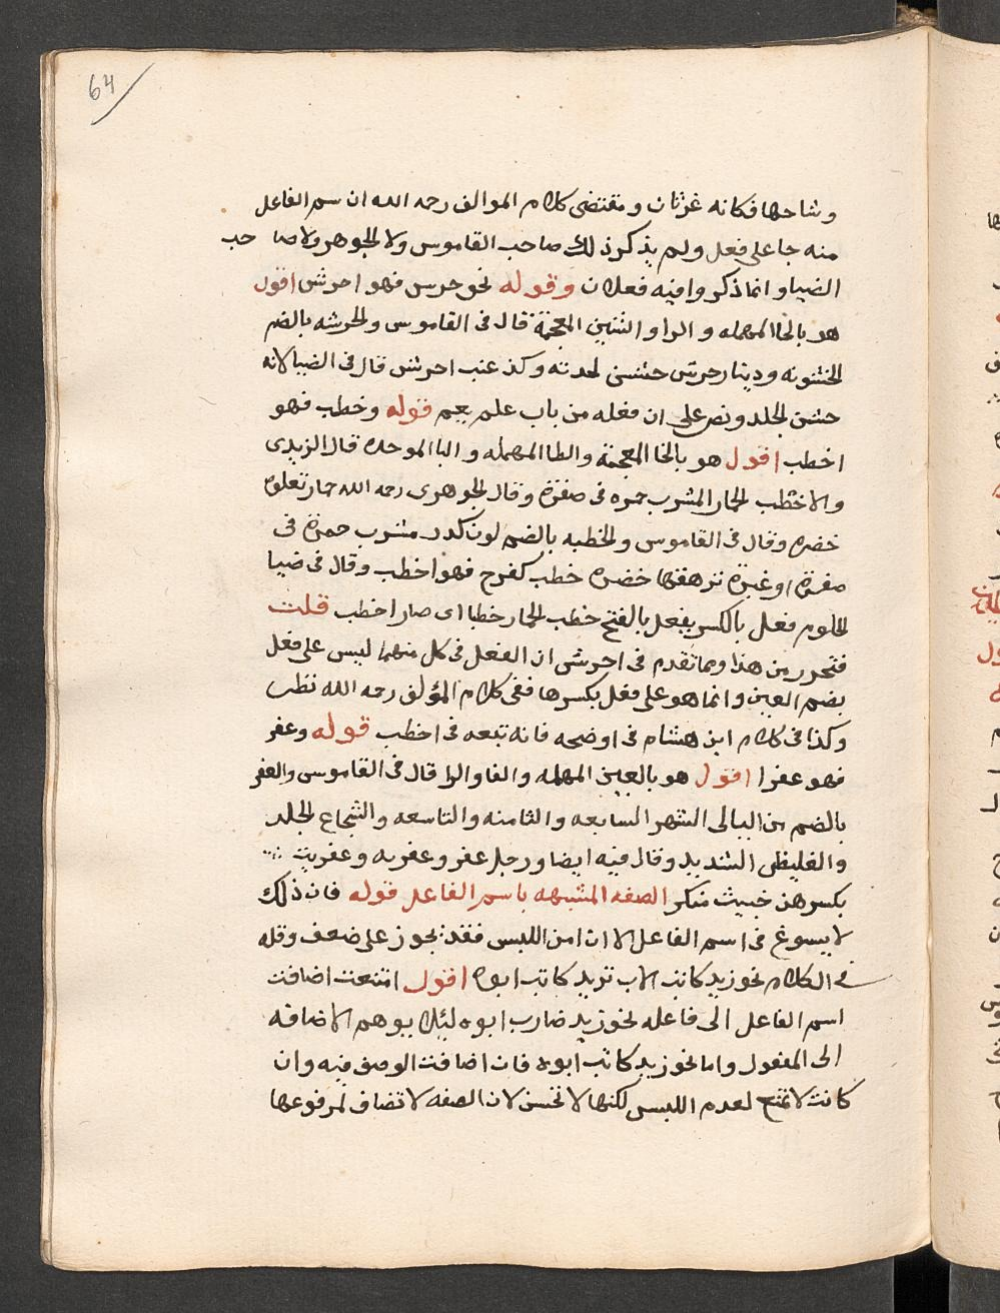 64
وشاحها فكانه غرثان ومقتضى كلام الموالف رحمه الله ان سم الفاعل
منه جا على فعل ولم يذكر ذلك صاحب القاموس ولا الجوهر ولا صا حب
الضيا وانما ذكروا فيه فعلان وقوله نحو حرس فهو احرش اقول
هو بالحا المهمله والرا والشين المعجمة قال في القاموس والحرشه بالضم
الخشونه ودينار حرش خشن لجدته وكذ عنب احرش قال في الضيا لانه
خشن الجلد ونص على ان فعله من باب علم يعم قوله وخطب فهو
اخطب اقول هو بالخا المعجمة والطا المهمله والبا الموحده قال الزبدى
والاخطب الحمار المشرب حمره في صفرة وقال الجوهرى رحمه الله حمار تعلوه
خضره وقال في القاموس والخطبه بالضم لون كدر مشرب حمرة في
صفرة او غبرة ترهقها خضره خطب كفرح فهو اخطب وقال في ضيا
الحلوم فعل بالكسر يفعل بالفتح خطب الحمار خطبا اى صار اخطب قلت
فتحرر من هذا ومما تقدم في احرش ان الفعل في كل منهما ليس على فعل
بضم العين وانما هو على فعل بكسرها ففي كلام المؤلف رحمه الله نظر
وكذا في كلام ابن هشام في اوضحه فانه تبعه في اخطب قوله وعفر
فهو عفرا اقول هو بالعين المهمله والفا والرا قال في القاموس والعفر
بالضم من الليالى الشهر السابعه والثامنه والتاسعه والشجاع الجلد
والغليظ الشديد وقال فيه ايضا ورجل عفر وعفريه وعفريت
بكسرهن خبيث منكر الصفه المشبهه باسم الفاعل قوله فان ذلك
لا يسوغ في اسم الفاعل الا ان امن اللبس فقد يجوز على ضعف وقله
في الكلام نحو زيد كاتب الاب تريد كاتب ابوه اقول امتنعت اضافت
اسم الفاعل الى فاعله نحو زيد ضارب ابوه ليلا يوهم الاضافه
الى المفعول واما نحو زيد كاتب ابوه فان اضافت الوصف فيه وان
كانت لا تمتنع لعدم اللبس لكنها لا تحسن لان الصفه لا تضاف لمرفوعها